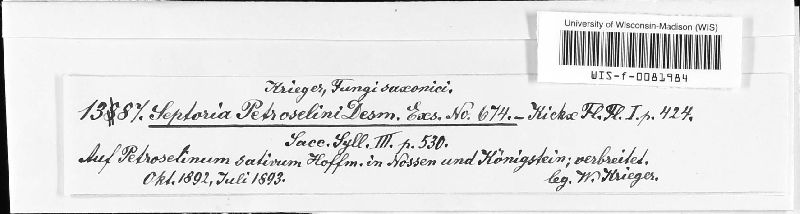 University of Wisconsin-Madison (WIS)
WIS-f-0081984
Krieger, Fungi saxonici.
1387. Septoria Petroselini Desm. Exs. No. 674. - Kickx Fl. Fl. I. p. 424.
Sacc. Syll. III. p. 530.
Auf Petroselinum sativum Hoffm. in Nossen und Königstein; verbreitet.
Okt. 1892, Juli 1893. leg. W. Krieger.